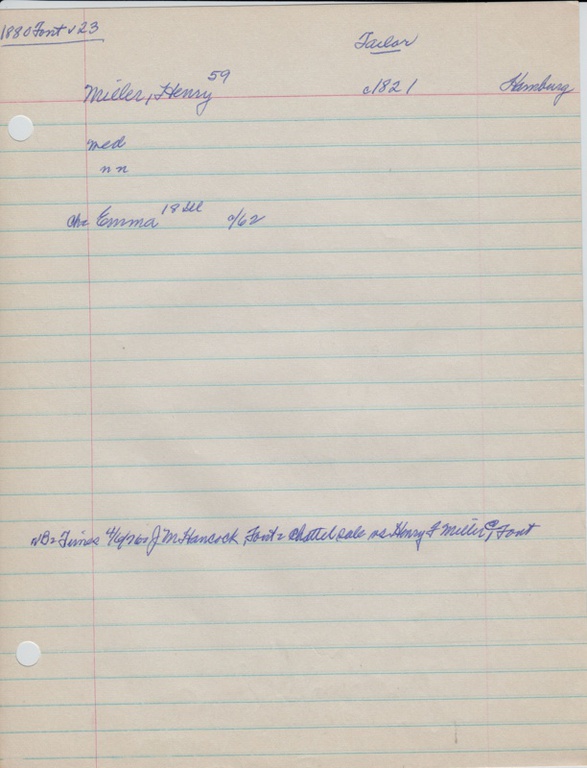 1880 Font v 23
Tailor
Miller, Henry 59 c1821 Hamburg
med
nn
ch= Emma 18 Sel /62
NB= Times J M Hancock, Font= Chattel sale vs Henry F Miller, Font